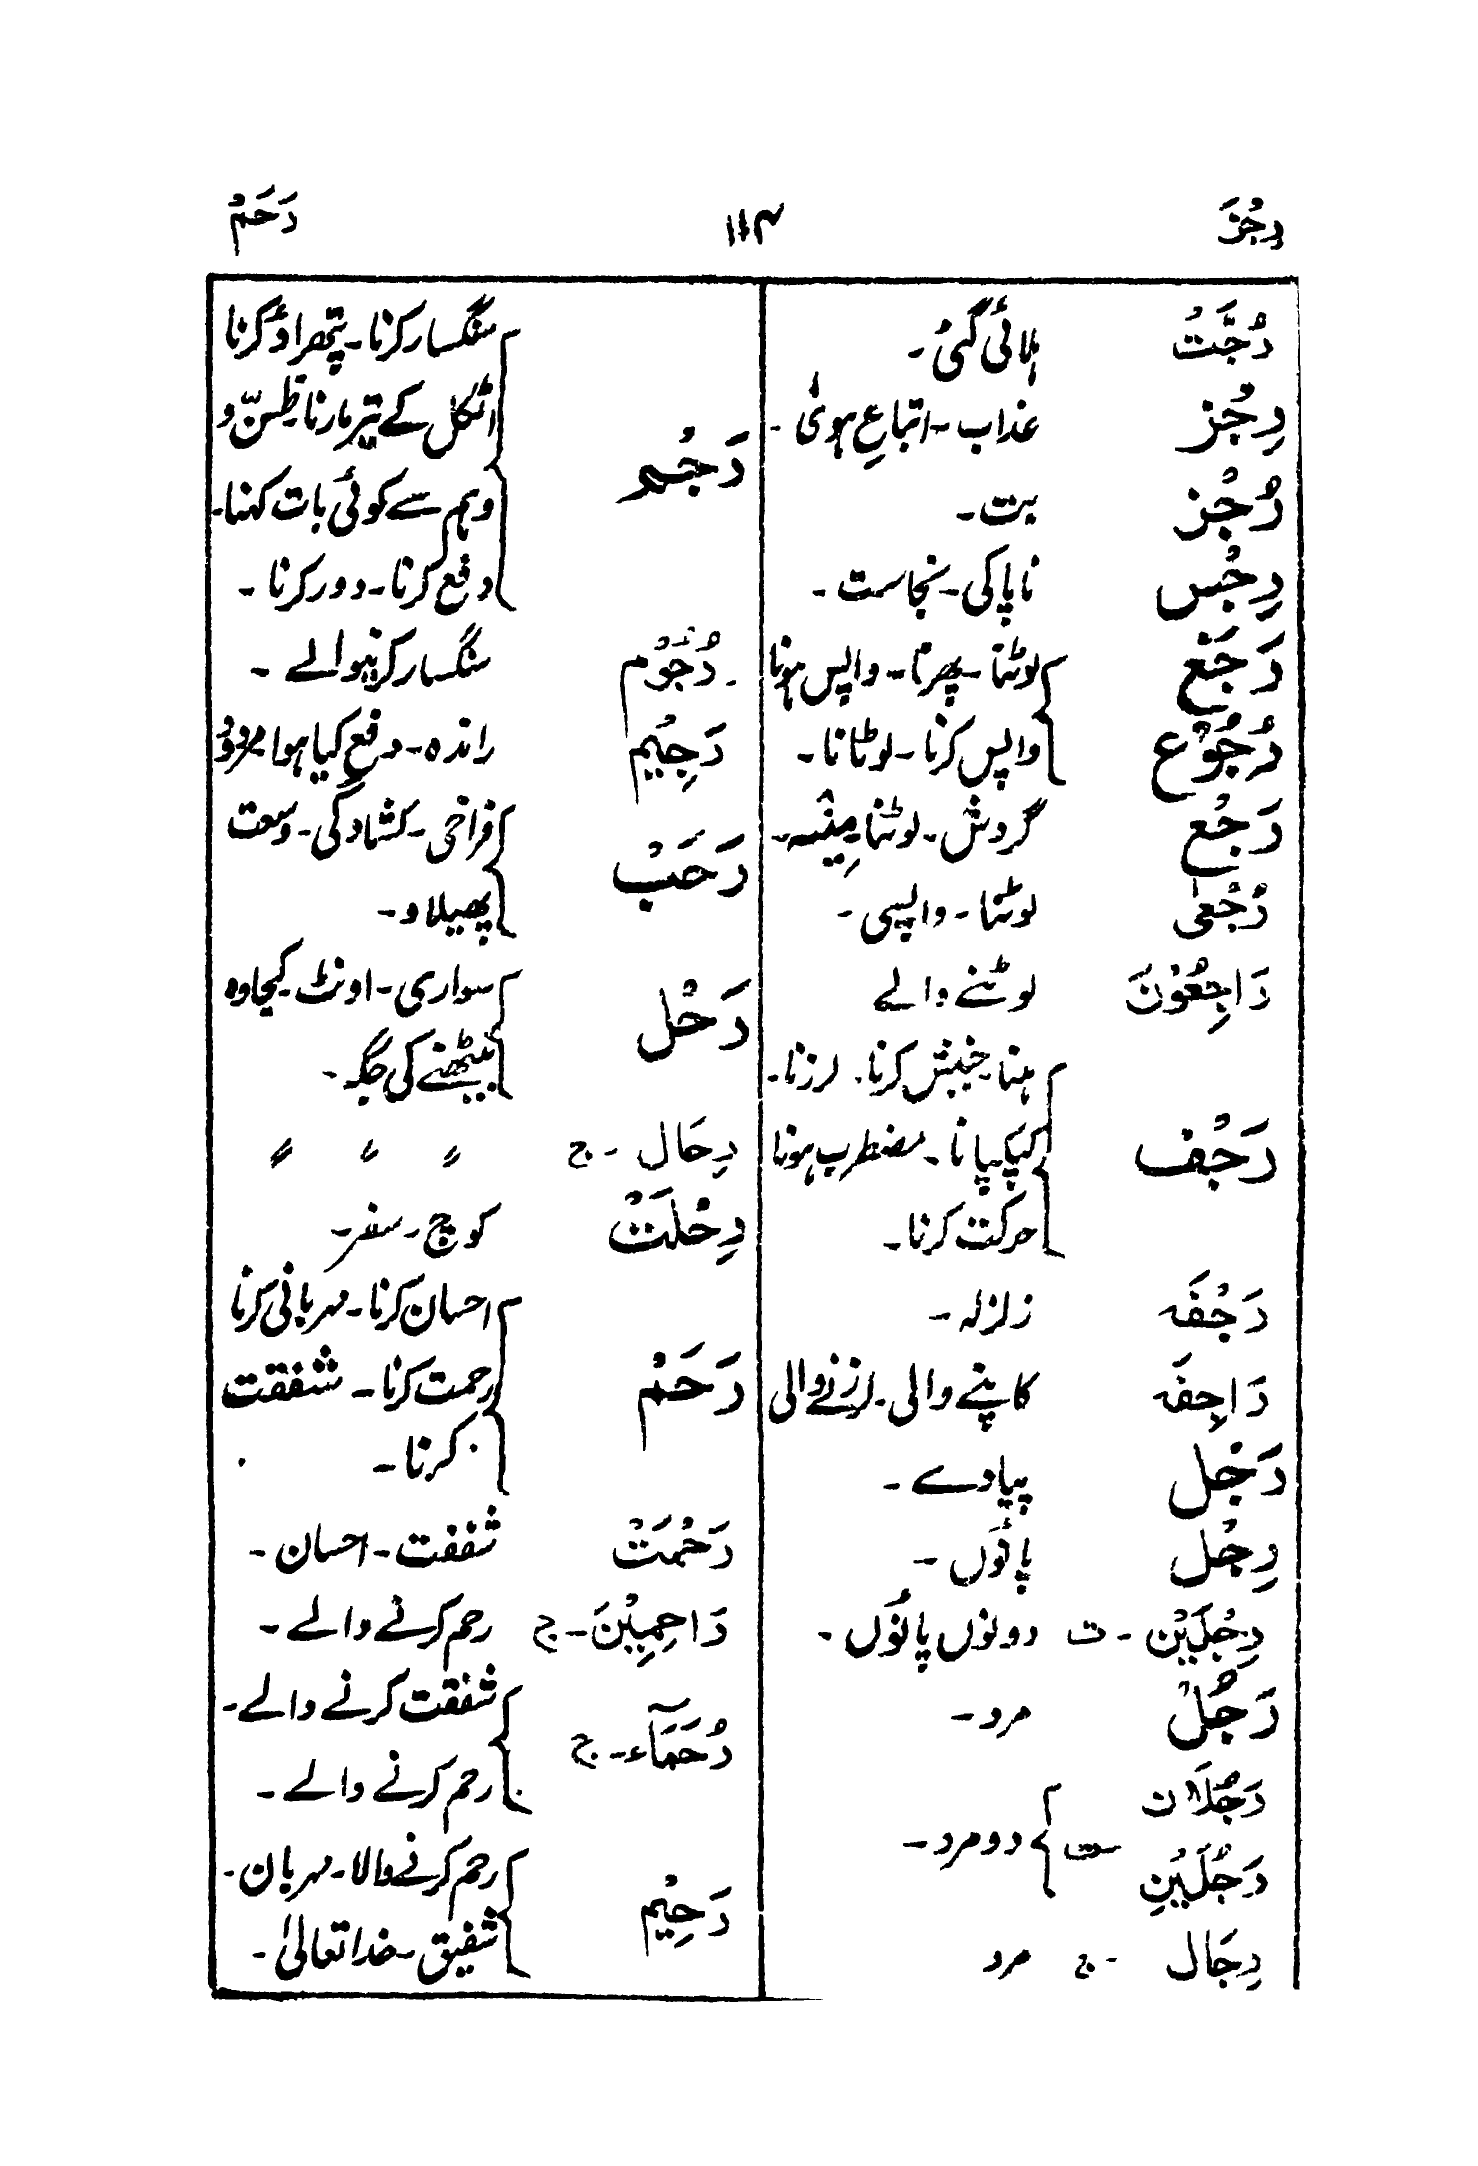 رِجْزَ ۱۱۴ رَحَمْ
رُجَّتُ ہلائی گئی۔
رِجْز عذاب۔ اتباعِ ہویٰ۔
رُجْز بت۔
رِجْس ناپاکی۔ نجاست۔
رَجَعَ لوٹنا۔ پھرنا۔ واپس ہونا
رُجُوْع واپس کرنا۔ لوٹانا۔
رَجْع گردش۔ لوٹنا۔
رُجْعٰی لوٹنا۔ واپسی۔
رَاجِعُوْنَ لوٹنے والے
ہلنا۔ جنبش کرنا۔ لرزنا۔
رَجْف کپکپانا۔ مضطرب ہونا
حرکت کرنا۔
رَجْفَہ زلزلہ۔
رَاجِفَہ کانپنے والی۔ لرزنے والی
رَجْل پیادے۔
رِجْل پاؤں۔
رِجْلَیْن ۔ ت دونوں پاؤں۔
رَجُلٌ مرد۔
رَجُلَان
ت دو مرد۔
رَجُلَیْنِ
رِجَال ۔ ج مرد
سنگسار کرنا۔ پتھراؤ کرنا
اٹکل کے تیر مارنا ظنّ و
رَجْم
وہم سے کوئی بات کہنا۔
دفع کرنا۔ دور کرنا۔
رُجُوْم سنگسار کرنیوالے۔
رَجِیْم راندہ۔ دفع کیا ہوا مردُود
فراخی۔ کشادگی۔ وسعت
رَحْبَ
پھیلاو۔
سواری۔ اونٹ۔ کجاوہ
رَحْل
بیٹھنے کی جگہ۔
رِحَال ۔ ج ؍؍ ؍؍ ؍؍
رِحْلَتْ کوچ۔ سفر۔
احسان کرنا۔ مہربانی کرنا
رَحَمْ رحمت کرنا۔ شفقت
کرنا۔
رَحْمَتْ شفقت۔ احسان۔
رَاحِمِیْنَ۔ ج رحم کرنے والے۔
شفقت کرنے والے۔
رُحَمَآء۔ ج
رحم کرنے والے۔
رحم کرنے والا۔ مہربان۔
رَحِیْم
شفیق۔ خدا تعالیٰ۔